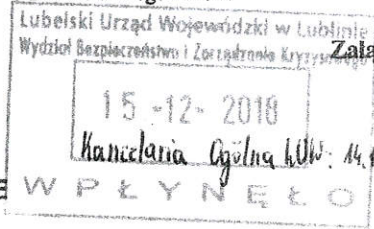 Lubelski Urząd Wojewódzki w Lublinie
Wydział Bezpieczeństwa i Zarządzania Kryzysowego
Zała
15 -12- 2016
Kancelaria Ogólna LUW: 14.
WPŁYNĘŁO